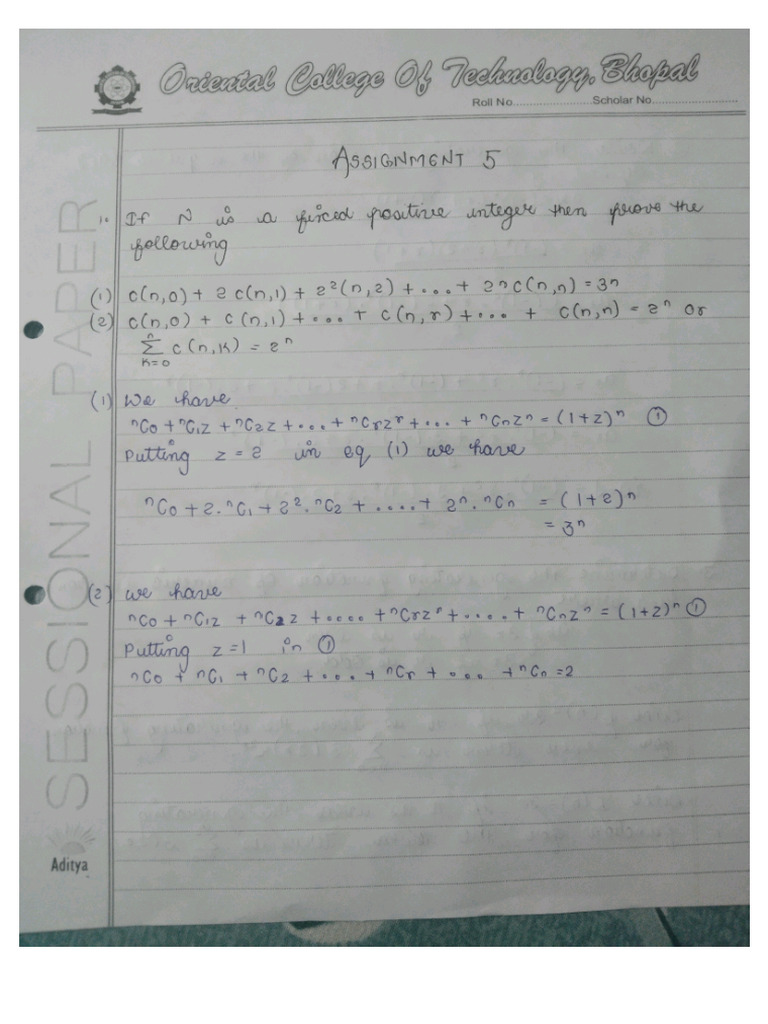 Oriental College Of Technology, Bhopal
Roll No........................Scholar No..........................
ASSIGNMENT 5
1. If N is a fixed positive integer then prove the
following
(1) C(n,0) + 2 C(n,1) + 2²(n,2) + .... + 2ⁿC(n,n) = 3ⁿ
(2) C(n,0) + C(n,1) + .... + C(n,r) + .... + C(n,n) = 2ⁿ or
n∑K=0 C(n,K) = 2ⁿ
(1) We have
ⁿC0 + ⁿC1z + ⁿC2z + .... + ⁿCrzʳ + .... + ⁿCnzⁿ = (1+z)ⁿ ①
Putting z = 2 in eq (1) we have
ⁿC0 + 2.ⁿC1 + 2².ⁿC2 + ..... + 2ⁿ.ⁿCn = (1+2)ⁿ
= 3ⁿ
(2) we have
ⁿC0 + ⁿC1z + ⁿC2z + ..... + ⁿCrzʳ + ..... + ⁿCnzⁿ = (1+z)ⁿ ①
Putting z = 1 in ①
ⁿC0 + ⁿC1 + ⁿC2 + .... + ⁿCr + .... + ⁿCn = 2
SESSIONAL PAPER
Aditya